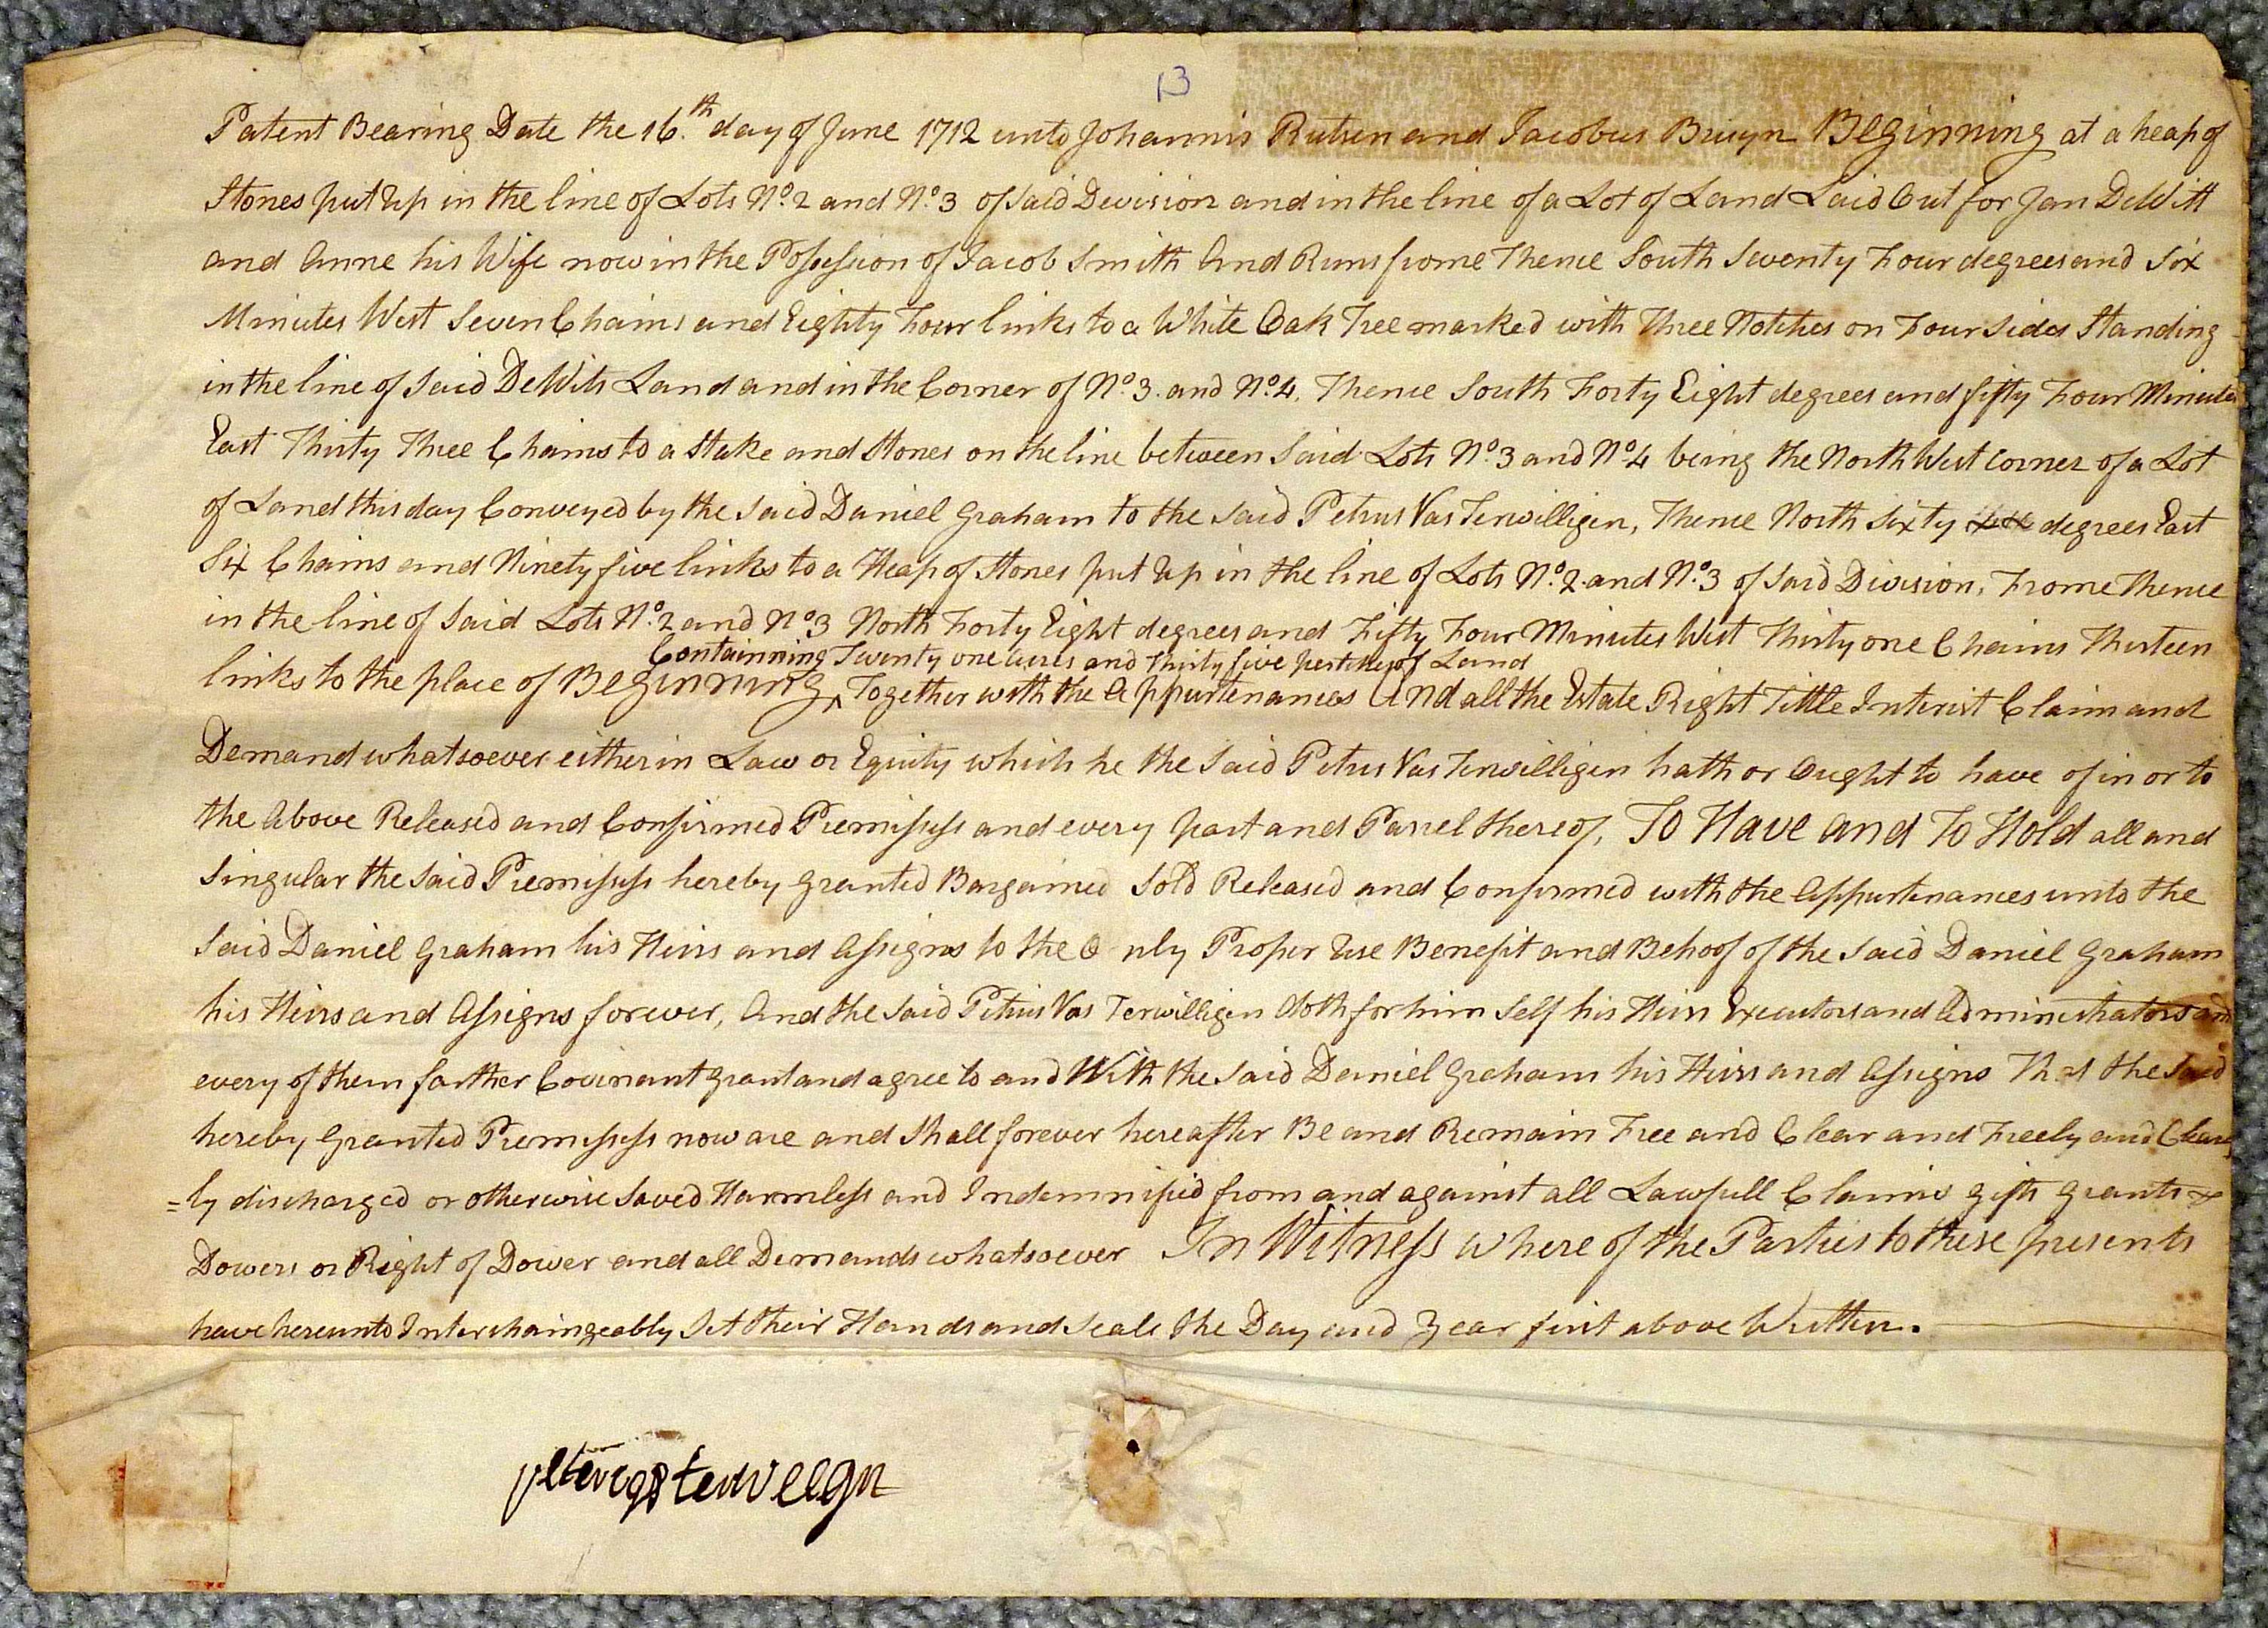 13
Patent Bearing Date the 16.th day of June 1712 unto Johannis Rutsen and Jacobus Bruyn Beginning at a heap of
Stones put Up in the line of Lots No. 2 and No. 3 of said Devision and in the line of a Lot of Land Laid Out for Jan DeWitt
and Anne his Wife now in the Possession of Jacob Smith And Runs frome Thence South Seventy Four degrees and Six
Minutes West Seven Chains and Eighty Four links to a White Oak Tree marked with Three Notches on Four Sides Standing
in the line of Said DeWits Land and in the Corner of No. 3. and No. 4. Thence South Forty Eight degrees and fifty Four Minutes
East Thirty Three Chains to a Stake and Stones on the line between Said Lots No. 3 and No. 4 being the North West Corner of a Lot
of Land this day Conveyed by the Said Daniel Graham to the Said Petrus Vas Terwilligen, Thence North Sixty degrees East
Six Chains and Ninety five links to a Heap of Stones put Up in the line of Lots No. 2. and No. 3 of Said Division, Frome Thence
in the line of Said Lots No. 2 and No. 3 North Forty Eight degrees and Fifty Four Minutes West Thirty one Chains Thirteen
Containning Twenty one Acres and Thirty five perches of Land
links to the place of Beginning, ‸ Together with the Appurtenances And all the Estate Right Tittle Interist Claim and
Demand whatsoever either in Law or Equity which he the Said Petrus Vas Terwilligen hath or Ought to have of in or to
the Above Released and Confirmed Premissess and every part and Parsel thereof, To Have and To Hold all and
Singular the Said Premissess hereby granted Bargained Sold Released and Confirmed with the Appurtenances unto the
Said Daniel Graham his Heirs and Assigns to the O nly Proper Use Benefit and Behoof of the Said Daniel Graham
his Heirs and Assigns forever, And the Said Petrus Vas Terwilligen doth for him Self his Heirs Executors and Administrators and
every of them farther Covinant grant and agree to and With the Said Daniel Graham his Heirs and Assigns That the Said
hereby Granted Premissess now are and Shall forever hereafter Be and Remain Free and Clear and Freely and Clear
=ly discharged or otherwise Saved Harmless and Indemnified from and against all Lawfull Claims gifts grants &
Dowers or Right of Dower and all Demands whatsoever In Witness where of the Parties to these presents
have hereunto Interchaingeably Set their Hands and Seals the Day and Year first above Written.